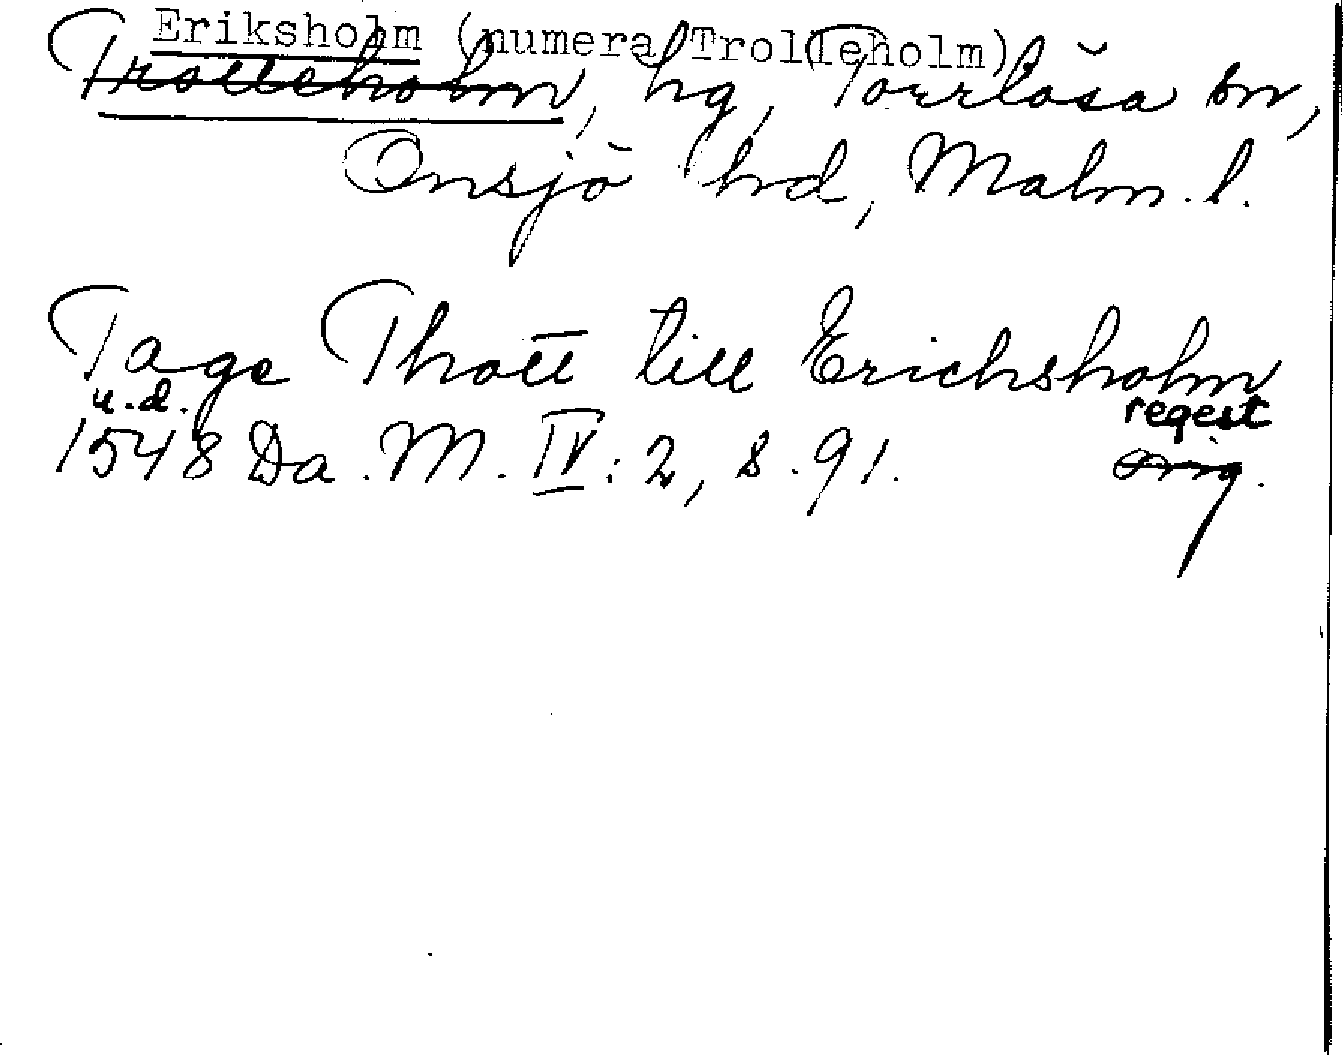 Eriksholm (numera Trolleholm)
Trolleholm, hg, Torrlösa sn,
Onsjö hd, Malm. l.
Tage Thott till Erichsholm
u.d. regest
1548 Da. M. IV: 2, s. 91. orig.